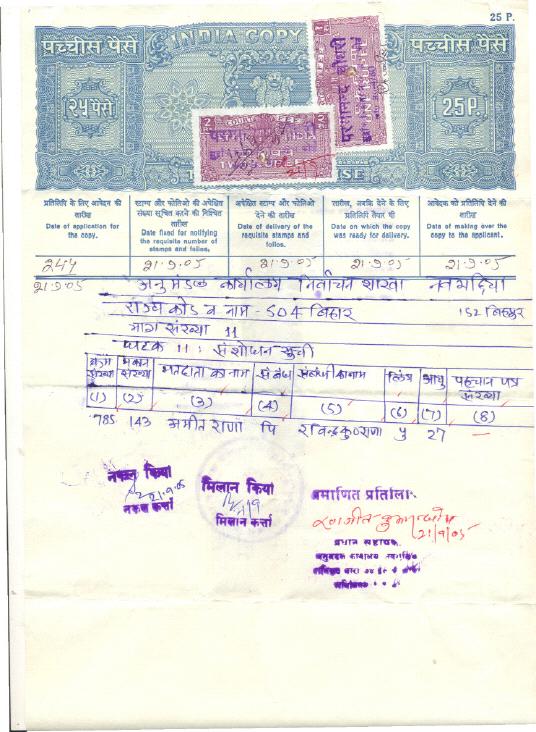 25 P.
पच्चीस पैसे INDIA COPY पच्चीस पैसे
२५ पैसे 25P.
प्रतिलिपि के लिए आवेदन की तारीख
Date of application for the copy.
स्टाम्प और फोलिओ की अपेक्षित संख्या सूचित करने की निश्चित तारीख
Date fixed for notifying the requisite number of stamps and folios.
अपेक्षित स्टाम्प और फोलिओ देने की तारीख
Date of delivery of the requisite stamps and folios.
तारीख, जबकि देने के लिए प्रतिलिपि तैयार थी
Date on which the copy was ready for delivery.
आवेदक को प्रतिलिपि देने की तारीख
Date of making over the copy to the applicant.
244 21.9.05 21.9.05 21.9.05 21.9.05
21.9.05 अनुमंडल कार्यालय निर्वाचन शाखा
राज्य कोड व नाम - S04 बिहार 152
भाग संख्या 11
घटक 11 : संशोधन सूची
क्रम संख्या मकान संख्या मतदाता का नाम संबंध संबंधी का नाम लिंग आयु पहचान पत्र संख्या
(1) (2) (3) (4) (5) (6) (7) (8)
785 143 अमीत राणा पि रविन्द्र कु० राणा पु 27 —
नकल किया
21.9.05
नकल कर्त्ता
मिलान किया
मिलान कर्त्ता
प्रमाणित प्रतिलि
21/9/05
प्रधान सहायक